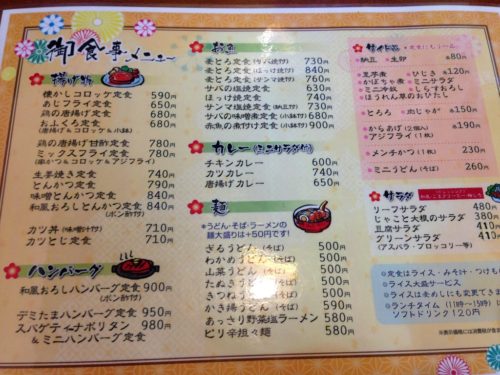 御食事メニュー
揚げ物
懐かしコロッケ定食 590
あじフライ定食 690
鶏の唐揚げ定食 680
おふくろ定食 680
(唐揚げ&コロッケ&小鉢)
鶏の唐揚げ甘酢定食 780
ミックスフライ定食 730
(串かつ&コロッケ&アジフライ)
生姜焼き定食 740
とんかつ定食 740
味噌とんかつ定食 790
和風おろしとんかつ定食 840
(ポン酢付)
カツ丼(味噌汁付) 710
カツとじ定食 710
ハンバーグ
和風おろしハンバーグ定食 900円
(ポン酢付)
デミたまハンバーグ定食 950円
スパゲティナポリタン 980円
&ミニハンバーグ定食
麦とろ定食 730円
麦とろ定食(ほっけ焼付) 840円
麦とろ定食(サンマ焼付) 760円
サバの塩焼定食 700円
ほっけ焼定食 740円
サンマ塩焼定食(納豆付) 700円
サバの味噌煮定食(小鉢付) 700円
赤魚の煮付け定食(小鉢付) 900円
カレー(ミニサラダ付)
チキンカレー 600
カツカレー 740
唐揚げカレー 650
麺
*うどん・そば・ラーメンの
麺大盛りは+50円です!
ざるうどん(そば) 500円
わかめうどん(そば) 500円
山菜うどん(そば) 500円
たぬきうどん(そば) 500円
きつねうどん(そば) 500円
かき揚うどん(そば) 580円
あっさり野菜塩ラーメン 580円
ピリ辛担々麺 580円
サイド品
納豆・生卵 各80円
里芋煮・ひじき 各120円
かぼちゃ煮・ミニサラダ
ミニ冷奴・しらすおろし
ほうれん草のおひたし
とろろ・肉じゃが 各150円
からあげ(2個入) 各190円
アジフライ(1枚)
メンチかつ(1枚) 230円
ミニうどん(そば) 260円
サラダ
リーフサラダ 480円
じゃこと大根のサラダ 380円
豆腐サラダ 380円
グリーンサラダ 410円
(アスパラ・ブロッコリー等)
○定食はライス・みそ汁・つけも
○ライス大盛サービス
○ライスは麦めしにも変更できま
○ランチタイム(11時~15時)
ソフトドリンク120円